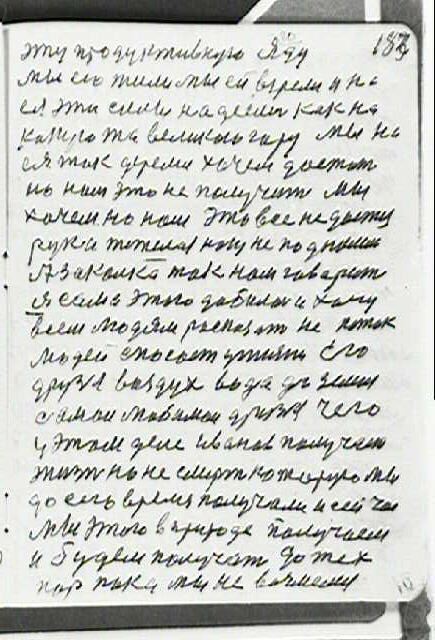 эту продуктивную яду 187
мы ею жили мы ей верели и на
ея эти силы надеемы как на
какую та великою гару мы на
ея так дерели хочем достат
но нам это не получит мы
хочем но нам это все не достиг
рука тяжела ногу не поднимиш
А закалка так нам говорит
я сама этого добилас и хочу
всем людям расказат не поток
людей спосает училищ Его
друзя воздух вода да земля
самои любимои друзя чего
у этом деле иванов получает
жизн но не смерт которую мы
до сего время получали и сеичас
мы этого в природе получаем
и будем получат до тех
пор пока мы не возмемся